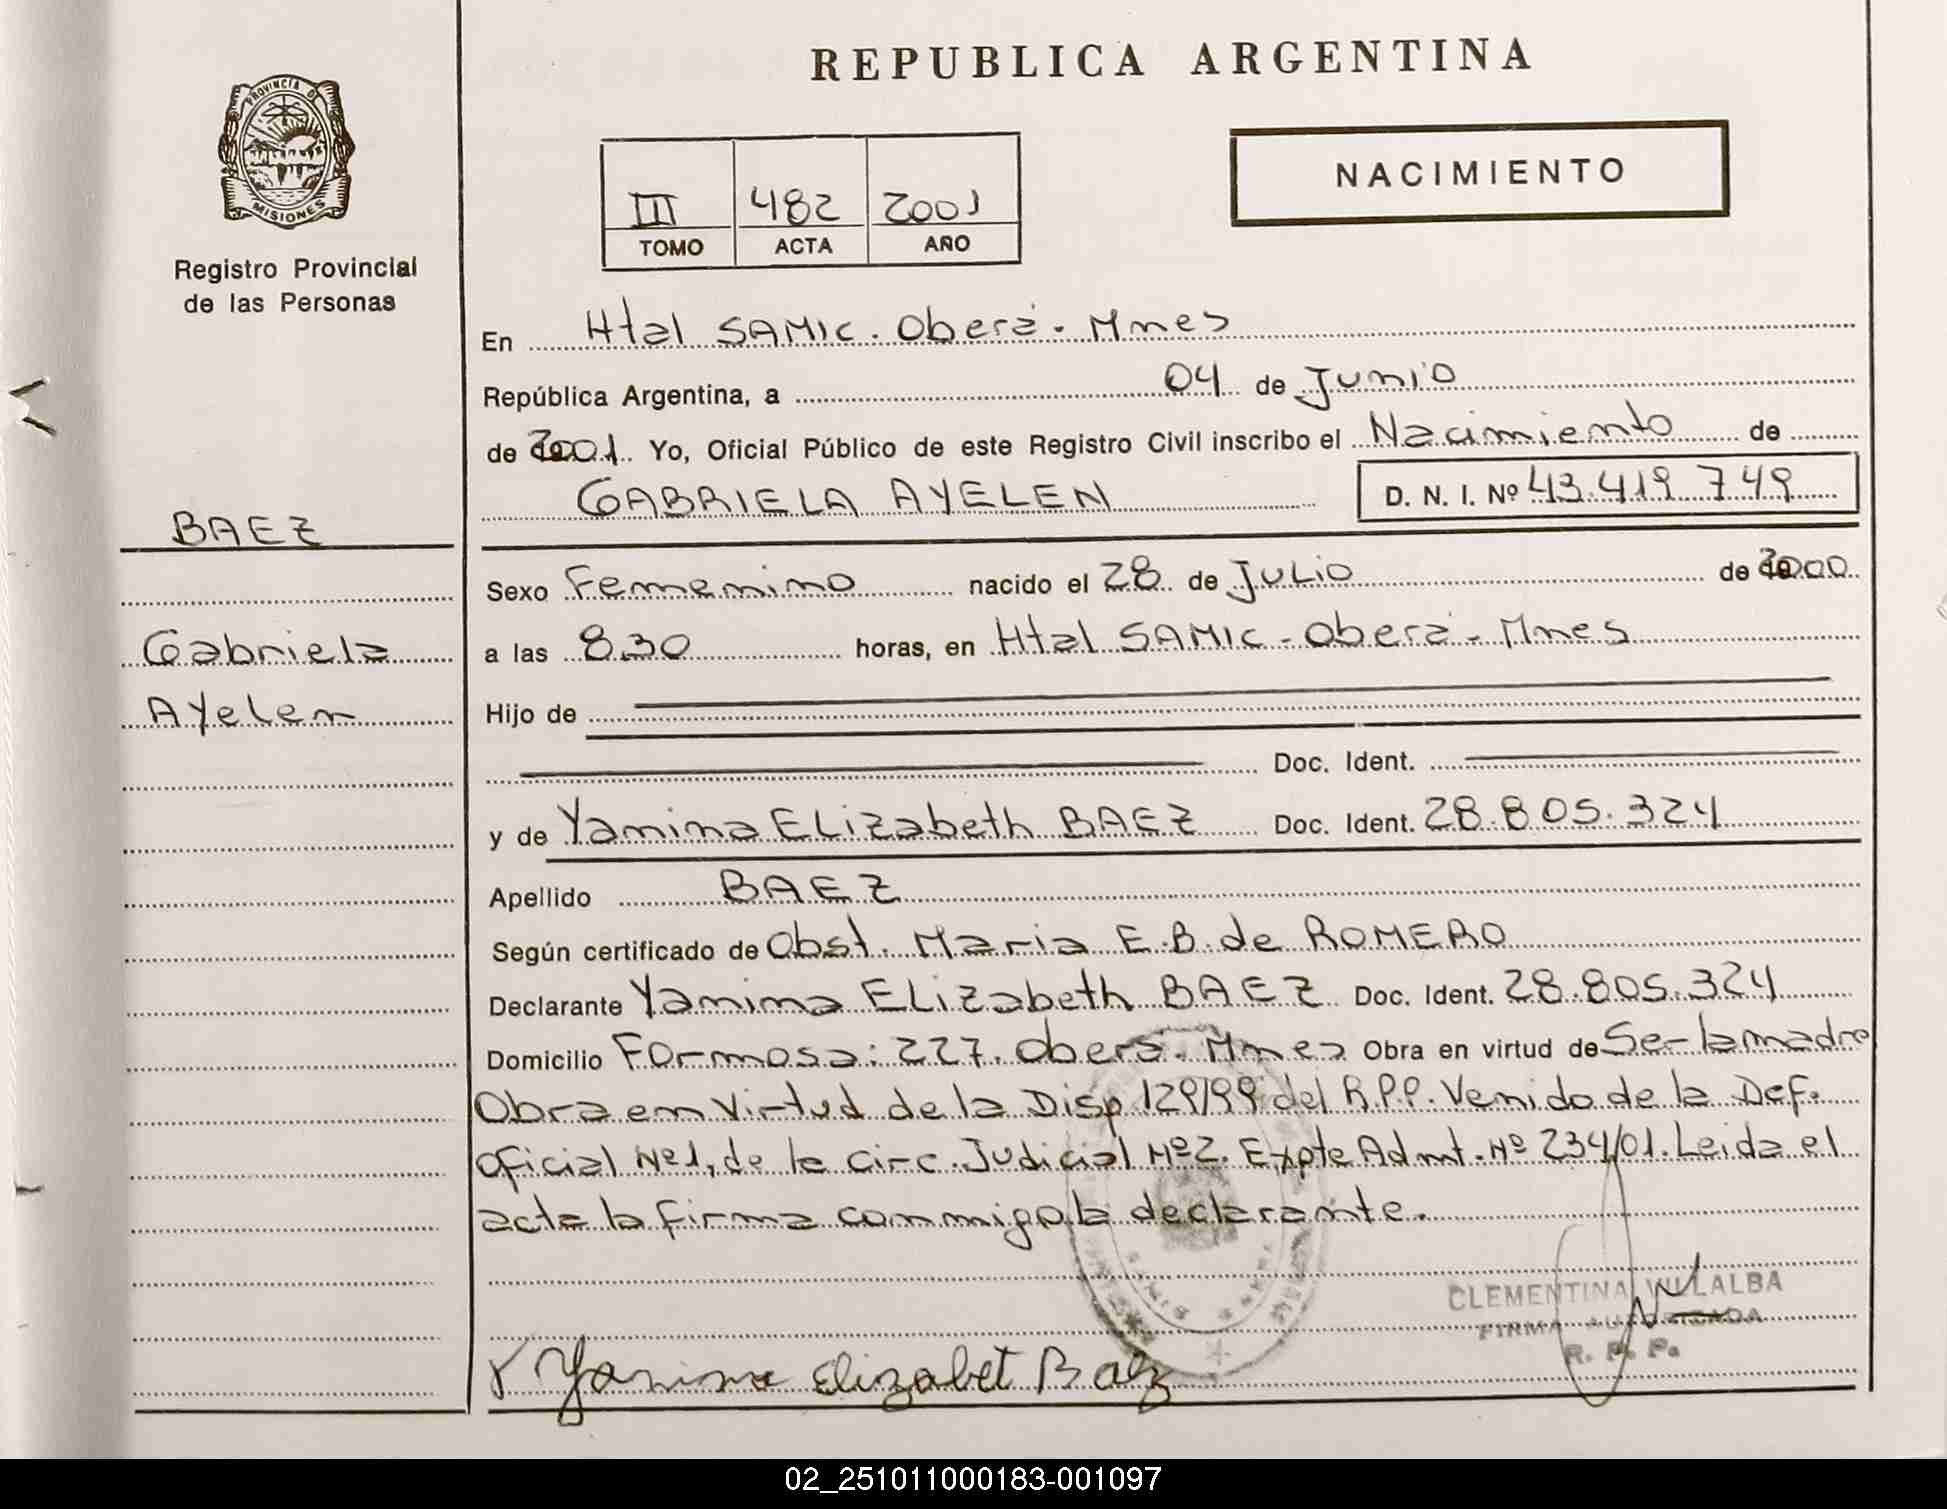 REPUBLICA ARGENTINA
PROVINCIA DE
MISIONES
Registro Provincial
de las Personas
NACIMIENTO
III 482 2001
TOMO ACTA AÑO
En Htal SAMIC. Oberá. Mnes
República Argentina, a 04 de Junio
de 2001 Yo, Oficial Público de este Registro Civil inscribo el Nacimiento de
GABRIELA AYELEN D. N. I. Nº 43.419.749
BAEZ
Gabriela
Ayelen
Sexo Femenino nacido el 28 de Julio de 2000
a las 8.30 horas, en Htal SAMIC - Oberá - Mnes
Hijo de
Doc. Ident.
y de Yamina Elizabeth BAEZ Doc. Ident. 28.805.324
Apellido BAEZ
Según certificado de Obst. Maria E.B. de ROMERO
Declarante Yamina Elizabeth BAEZ Doc. Ident. 28.805.324
Domicilio Formosa: 227. Oberá. Mnes Obra en virtud de Ser la madre
Obra en virtud de la Disp 129/99 del R.P.P. Venido de la Def.
oficial Nº1, de la Circ. Judicial Nº2. Expte Admt. Nº 234/01. Leida el
acta la firma conmigo la declarante.
CLEMENTINA VILLALBA
FIRMA AUTORIZADA
R. P. P.
Yamina Elizabet Baez
02_251011000183-001097